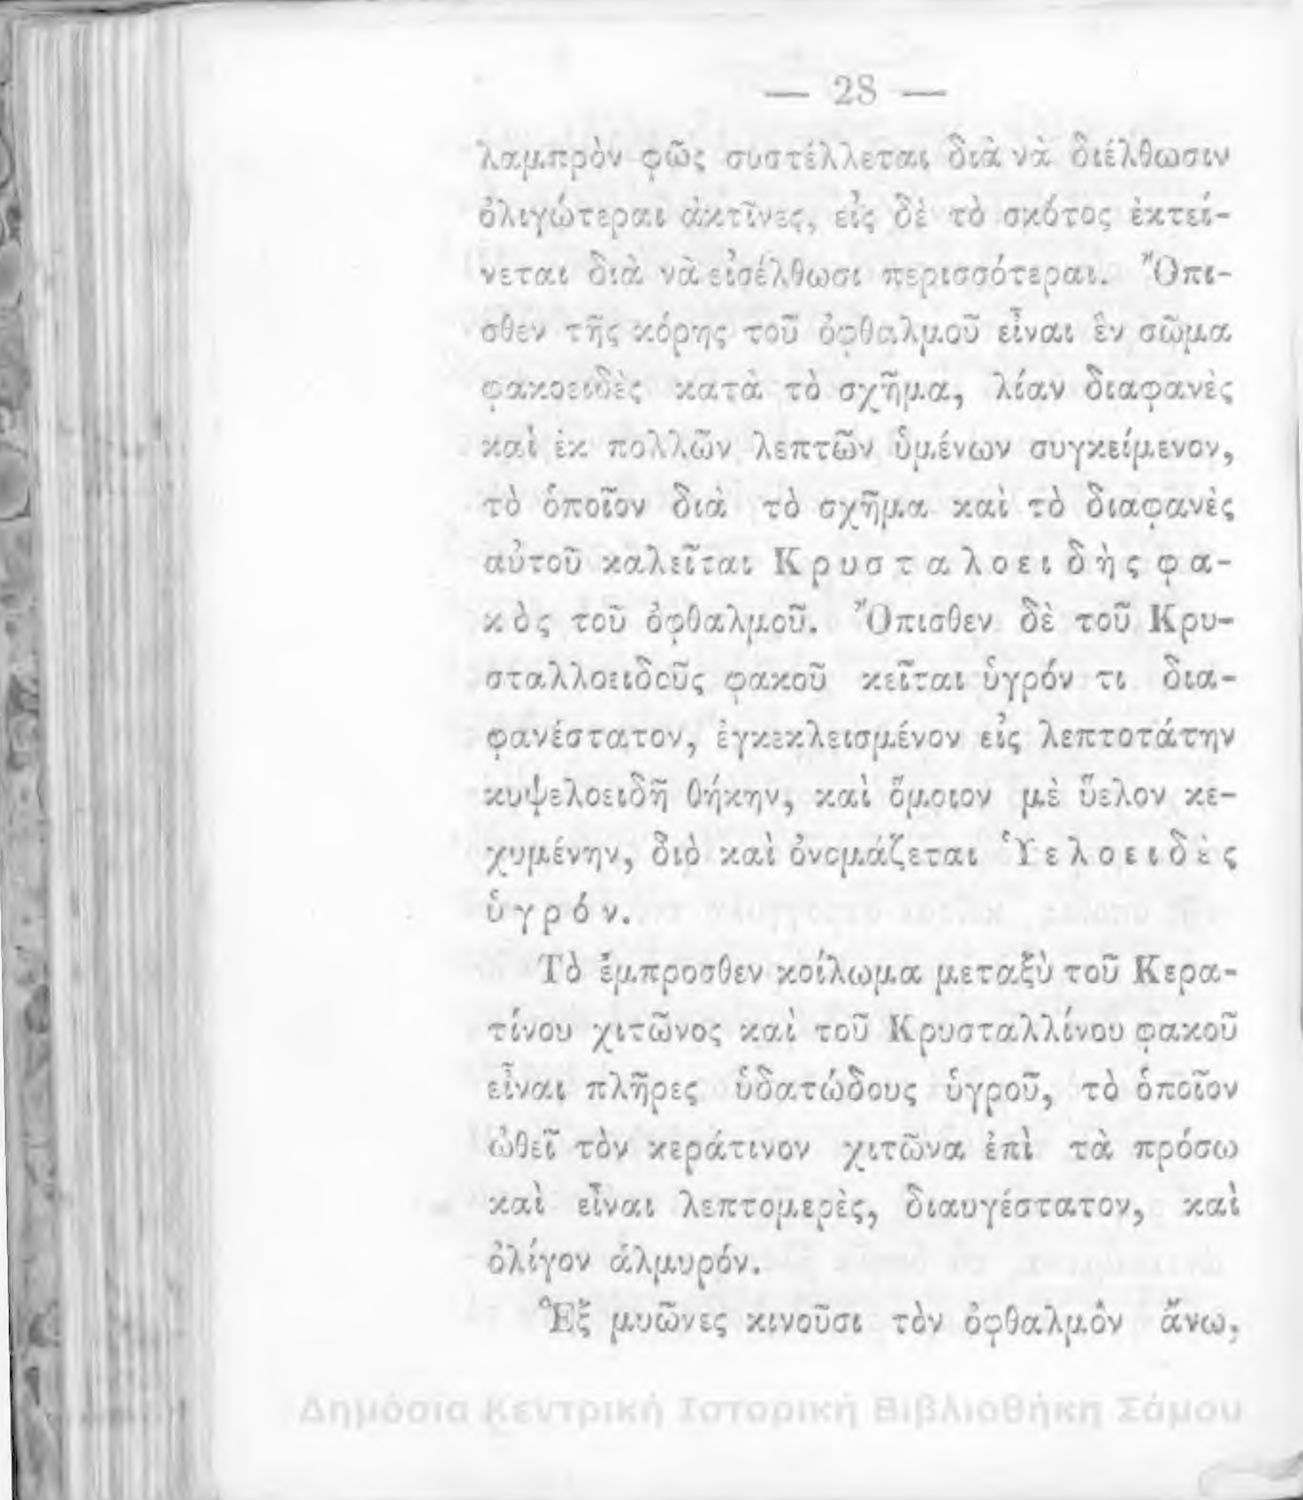 — 28 —
λαμπρὸν φῶς συστέλλεται διὰ νὰ διέλθωσιν
ὀλιγώτεραι ἀκτῖνες, εἰς δὲ τὸ σκότος ἐκτεί-
νεται διὰ νὰ εἰσέλθωσι περισσότεραι. Ὄπι-
σθεν τῆς κόρης τοῦ ὀφθαλμοῦ εἶναι ἓν σῶμα
φακοειδὲς κατὰ τὸ σχῆμα, λίαν διαφανὲς
καὶ ἐκ πολλῶν λεπτῶν ὑμένων συγκείμενον,
τὸ ὁποῖον διὰ τὸ σχῆμα καὶ τὸ διαφανὲς
αὐτοῦ καλεῖται Κρυσταλοειδὴς φα-
κὸς τοῦ ὀφθαλμοῦ. Ὄπισθεν δὲ τοῦ Κρυ-
σταλλοειδοῦς φακοῦ κεῖται ὑγρόν τι δια-
φανέστατον, ἐγκεκλεισμένον εἰς λεπτοτάτην
κυψελοειδῆ θήκην, καὶ ὅμοιον μὲ ὕελον κε-
χυμένην, διὸ καὶ ὀνομάζεται Ὑελοειδὲς
ὑγρόν.
Τὸ ἔμπροσθεν κοίλωμα μεταξὺ τοῦ Κερα-
τίνου χιτῶνος καὶ τοῦ Κρυσταλλίνου φακοῦ
εἶναι πλῆρες ὑδατώδους ὑγροῦ, τὸ ὁποῖον
ὠθεῖ τὸν κεράτινον χιτῶνα ἐπὶ τὰ πρόσω
καὶ εἶναι λεπτομερὲς, διαυγέστατον, καὶ
ὀλίγον ἁλμυρόν.
Ἓξ μυῶνες κινοῦσι τὸν ὀφθαλμὸν ἄνω,
Δημόσια Κεντρική Ιστορική Βιβλιοθήκη Σάμου